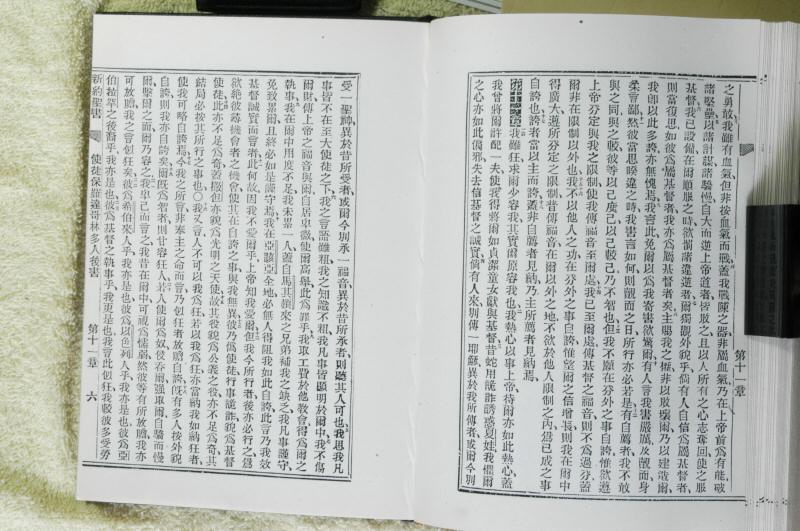 之勇敢我雖有血氣但非按血氣而戰蓋我戰陳之器非屬血氣乃在上帝前爲有能破
諸堅壘以諸計謀諸驕慢自大而逆上帝道者皆敗之且以人所有之心志奪回使之服
基督我已設備在爾順服之時欲罰諸違逆者爾獨觀外貌乎倘有人自信爲屬基督者
則當復思如彼爲屬基督者我亦爲屬基督者矣主賜我之權非以敗壞爾乃以建造爾
我卽以此多誇亦無愧焉我言此免爾以爲我寄書欲驚爾有人言我書嚴厲及覿面身
柔言鄙然彼當思睽違之時我書言如何則覿面之日所行亦必若是有自薦者我不敢
與之同與之較彼等以己度己以己較己乃不智也但我不願在分外之事自誇惟欲遵
上帝分定與我之限制使我傳福音至爾處我已至爾處傳基督之福音則不爲過分蓋
爾非在限制以外也我不以他人之功在分外之事自誇惟望爾之信增長則我在爾中
得廣大遵所分定之限制昔傳福音在爾以外之地不欲於他人限制之內爲已成之事
自誇也誇者當以主而誇蓋非自薦者見納乃主所薦者見納焉
第十一章我雖狂求爾少容我其實爾原容我也我熱心以事上帝待爾亦如此熱心蓋
我曾將爾許配一夫使我得將爾如貞潔童女獻與基督昔蛇用詭詐誘惑夏娃我懼爾
之心亦如此偏邪失去信基督之誠實倘有人來別傳一耶穌異於我所傳者或爾今別
第十一章
受一聖神異於昔所受者或爾今別承一福音異於昔所承者則聽其人可也我思我凡
事皆不在至大使徒之下我之言語雖粗我之知識不粗我凡事皆顯明於爾中我不傷
爾財傳上帝之福音與爾自居卑微使爾高舉此爲罪乎我取工費於他教會得爲爾之
執事我在爾中用度不足我未累一人蓋自馬其頓來之兄弟補我之缺乏我凡事謹守
免致累爾且終必如是謹守焉我在亞該亞全地必無人得阻我如此自誇此言乃我效
基督誠實而言者此何故因我不愛爾乎上帝知我愛爾但我今所行者後亦必行之爲
欲絕彼尋機會者之機會使其在自誇之事與我無異彼乃僞使徒行事詭詐貌爲基督
使徒此亦不足爲奇蓋撒但亦貌爲光明之天使故其役貌爲公義之役亦不足爲奇其
結局必按其所行之事也○我又言人不可以我爲狂若以我爲狂亦當納我如納狂者
使我可略自誇焉今我之所言非奉主之命而言乃似狂在放膽自誇旣有多人按外貌
自誇則我亦自誇矣爾旣爲智者則甘容狂人若人使爾爲奴侵呑爾強取爾自驕而慢
爾擊爾之面爾乃容之我卑己而言之我昔在爾中可視爲懦弱然彼等有所放膽我亦
可放膽我之言似狂矣彼爲希伯來人乎我亦是也彼爲以色列人乎我亦是也彼爲亞
伯拉罕之後裔乎我亦是也彼爲基督之執事乎我更是也我言此似狂我較彼多受勞
新約聖書 使徒保羅達哥林多人後書 第十一章 六